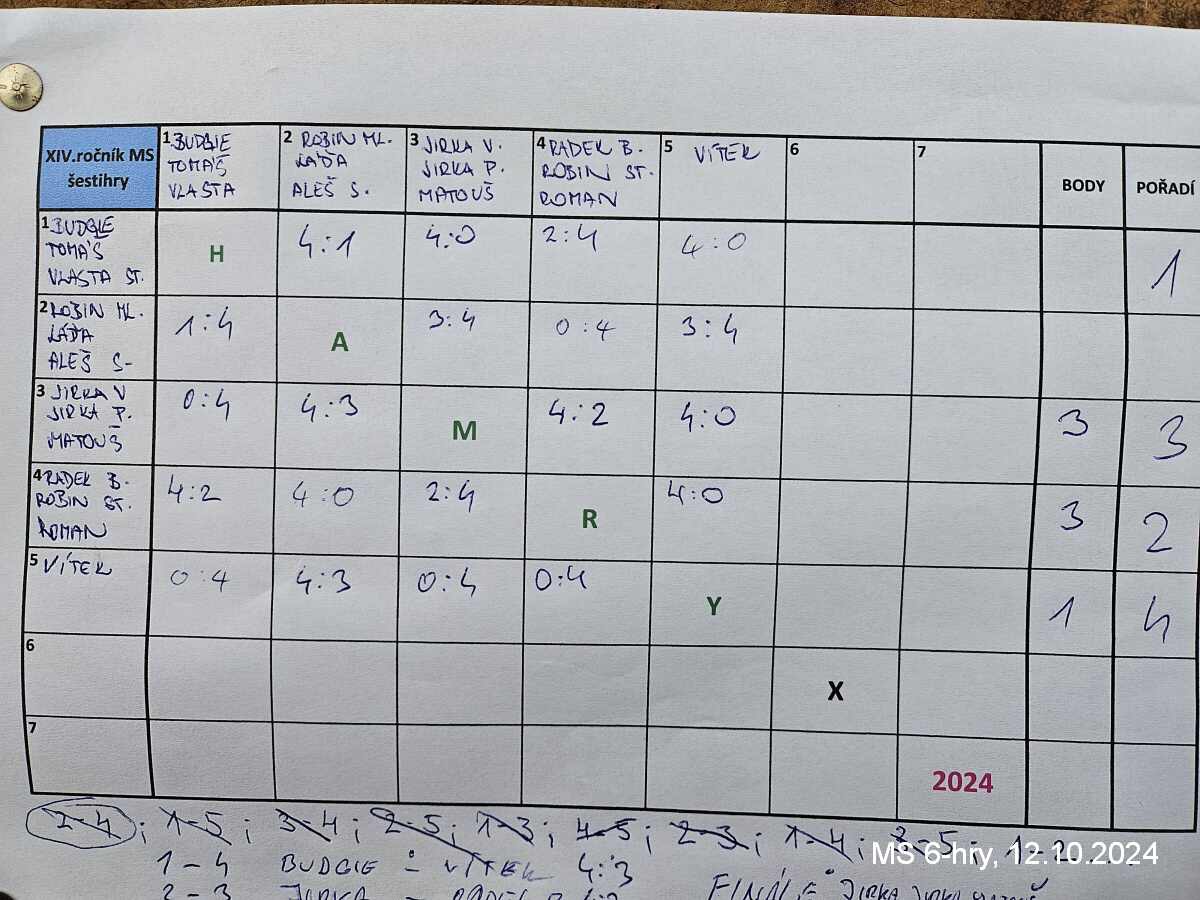 XIV.ročník MS
šestihry
1 BUDGIE
TOMÁŠ
VLASTA
2 ROBIN ML.
LÁĎA
ALEŠ S.
3 JIRKA V.
JIRKA P.
MATOUŠ
4 RADEK B.
ROBIN ST.
ROMAN
5 VÍTEK
6
7
BODY
POŘADÍ
1 BUDGIE
TOMÁŠ
VLASTA ST.
H
4:1
4:0
2:4
4:0
1
2 ROBIN ML.
LÁĎA
ALEŠ S-
1:4
A
3:4
0:4
3:4
3 JIRKA V
JIRKA P.
MATOUŠ
0:4
4:3
M
4:2
4:0
3
3
4 RADEK B.
ROBIN ST.
ROMAN
4:2
4:0
2:4
R
4:0
3
2
5 VÍTEK
0:4
4:3
0:4
0:4
Y
1
4
6
X
7
2024
2-4; 1-5; 3-4; 2-5; 1-3; 4-5; 2-3; 1-4; 3-5; 1-2
MS 6-hry, 12.10.2024
1-4 BUDGIE - VÍTEK 4:3
2-3 JIRKA - RADEK
FINÁLE JIRKA